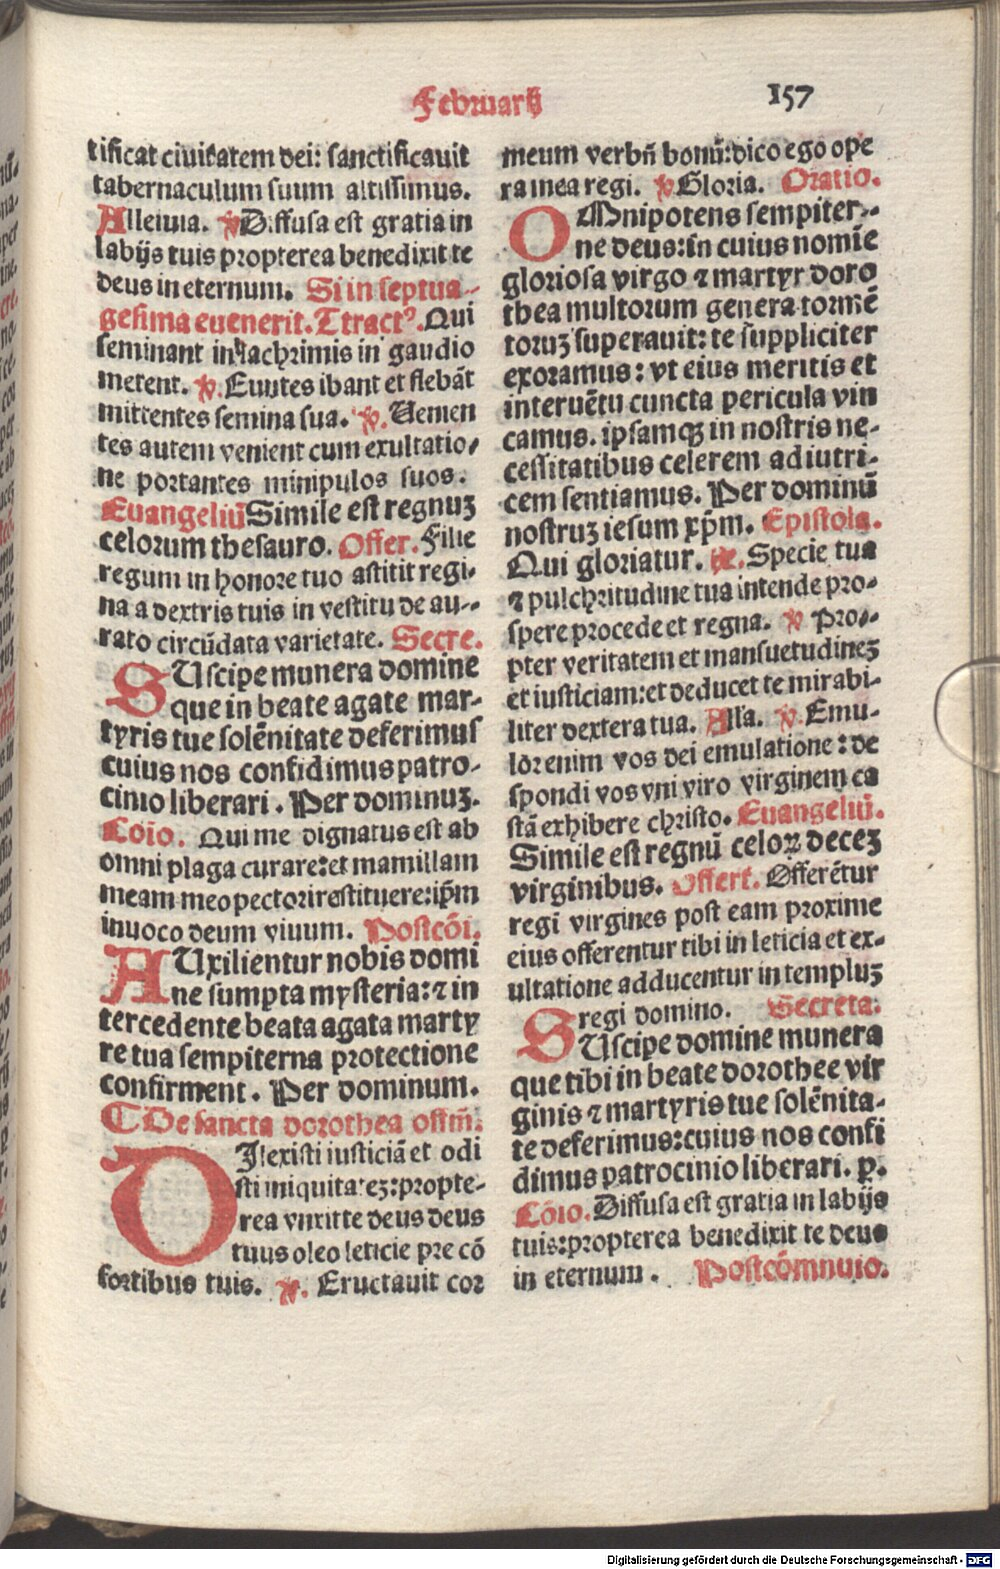 Februarij
157
tificat ciuitatem dei: sanctificauit
tabernaculum suum altissimus.
Alleiuia. ℣ Diffusa est gratia in
labijs tuis propterea benedixit te
deus in eternum. Si in septua-
gesima euenerit. Ttractꝰ. Qui
seminant in lachrimis in gaudio
metent. ℣. Euntes ibant et flebāt
mittentes semina sua. ℣. Uenien
tes autem venient cum exultatio/
ne portantes minipulos suos.
Euangeliū Simile est regnuꝫ
celorum thesauro. Offer. Filie
regum in honore tuo astitit regi-
na a dextris tuis in vestitu de au-
rato circūdata varietate. Secre.
SUscipe munera domine
que in beate agate mar-
tyris tue solēnitate deferimus
cuius nos confidimus patro-
cinio liberari. Per dominuꝫ.
Cōio. Qui me dignatus est ab
omni plaga curare: et mamillam
meam meo pectori restituere: ip̄m
inuoco deum viuum. Postcōi.
AUxilientur nobis domi
ne sumpta mysteria: ⁊ in
tercedente beata agata marty
re tua sempiterna protectione
confirment. Per dominum.
De sancta dorothea offm̄.
DIlexisti iusticiā et odi
sti iniquitateꝫ: propte-
rea vnxit te deus deus
tuus oleo leticie pre cō
sortibus tuis. ℣. Eructauit cor
meum verbū bonū: dico ego ope
ra mea regi. ℣ Gloria. Oratio.
OMnipotens sempiter-
ne deus: in cuius nomīe
gloriosa virgo ⁊ martyr doro
thea multorum genera tormē
toruꝫ superauit: te suppliciter
exoramus: vt eius meritis et
interuētu cuncta pericula vin
camus. ipsamqꝫ in nostris ne-
cessitatibus celerem adiutri-
cem sentiamus. Per dominū
nostruꝫ iesum xp̄m. Epistola.
Qui gloriatur. ℟. Specie tua
⁊ pulchritudine tua intende pro-
spere procede et regna. ℣ Pro-
pter veritatem et mansuetudineꝫ
et iusticiam: et deducet te mirabi-
liter dextera tua. Alla. ℣. Emu-
lor enim vos dei emulatione: de
spondi vos vni viro virginem ca
stā exhibere christo. Euangeliū.
Simile est regnū celoꝝ deceꝫ
virginibus. Offert. Offerētur
regi virgines post eam proxime
eius offerentur tibi in leticia et ex-
ultatione adducentur in templuꝫ
regi domino. Secreta.
SUscipe domine munera
que tibi in beate dorothee vir
ginis ⁊ martyris tue solēnita-
te deferimus: cuius nos confi
dimus patrocinio liberari. p.
Cōio. Diffusa est gratia in labijs
tuis: propterea benedixit te deus
in eternum. Postcōmnuio.
Digitalisierung gefördert durch die Deutsche Forschungsgemeinschaft - DFG